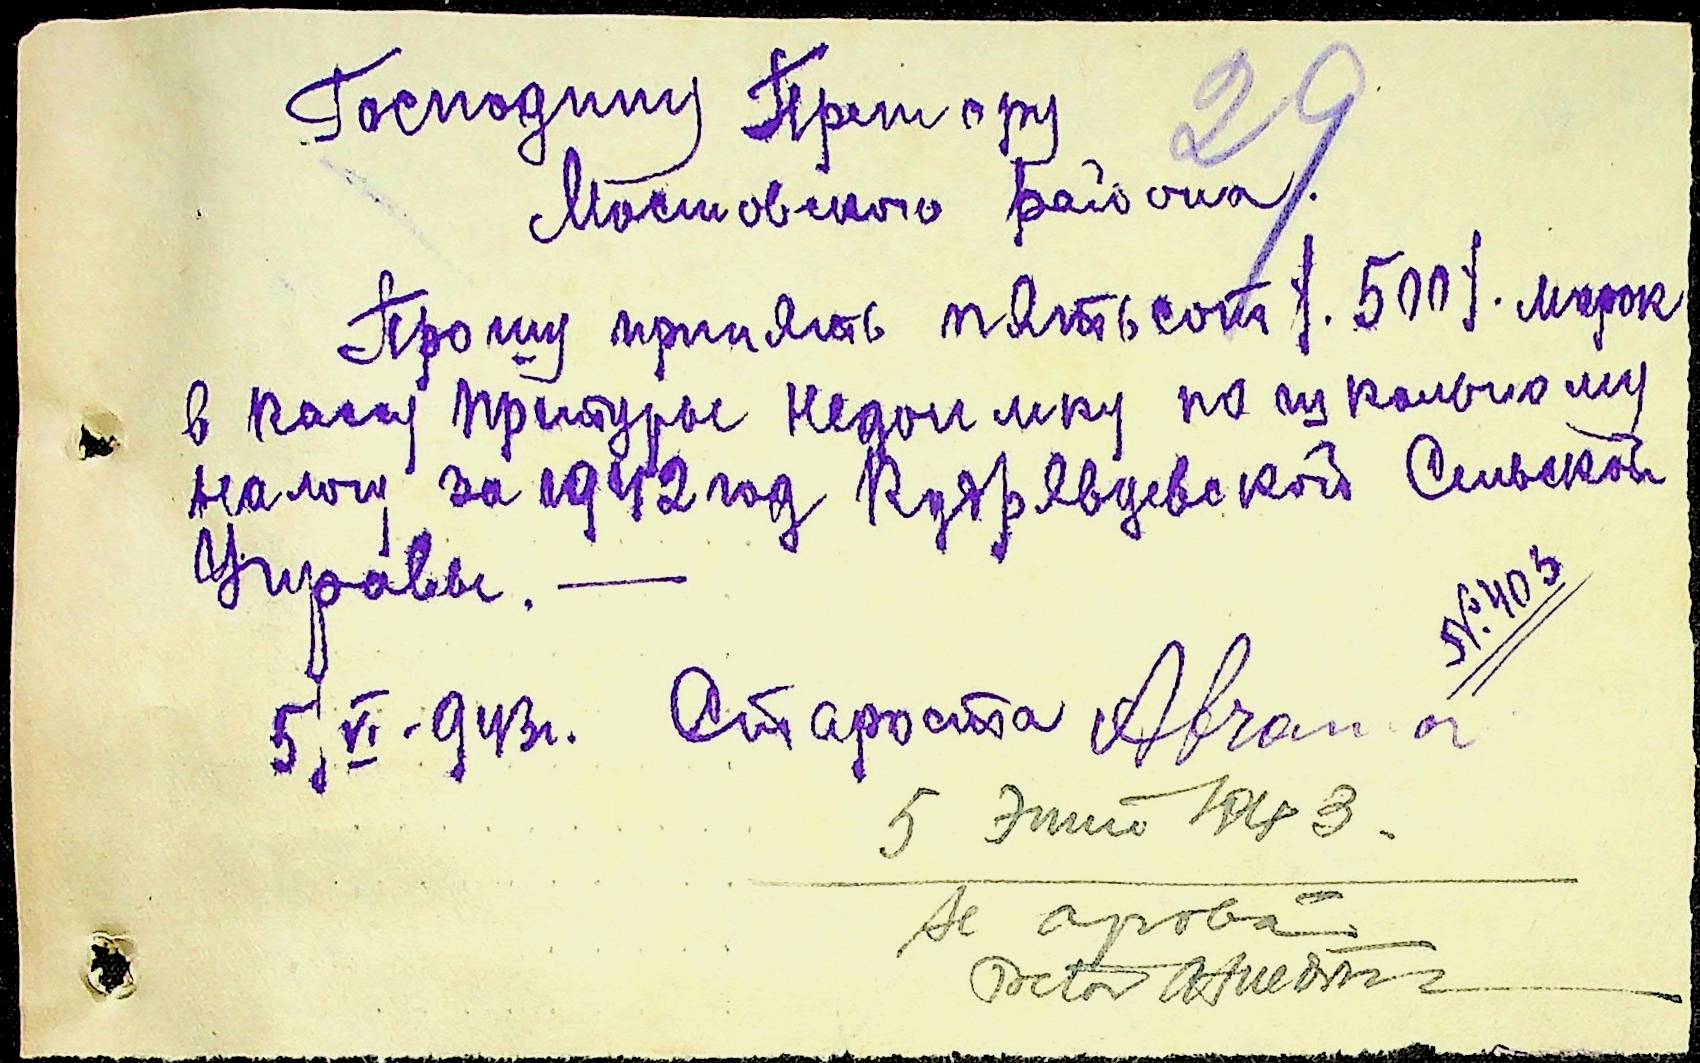 Господину Претору 29
Мостовского района.
Прошу принять пятьсот /. 500 /. марок
в кассу притуры недоимку по школьному
налогу за 1942 год Кудрявцевской Сельской
Управы. —
№ 403
5/VI-943г. Староста Abramov
5 Iunie 1943.
Se aprobă
Pretor